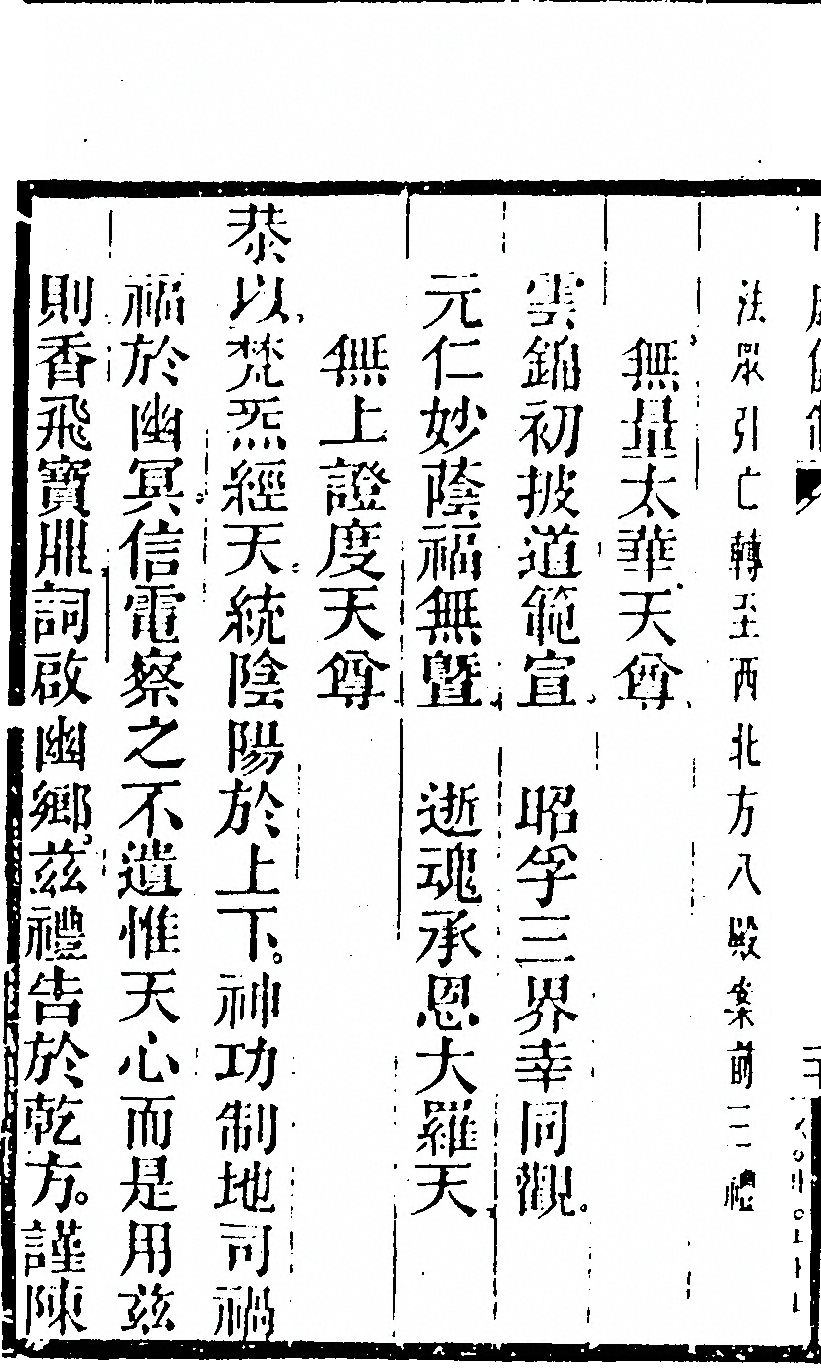 法眾引亡轉至西北方八殿案前三禮
無量太華天尊
雲錦初披道範宣 昭孚三界幸同觀。
元仁妙蔭福無曁 逝魂承恩大羅天
無上證度天尊
恭以梵炁經天統陰陽於上下。神功制地司禍
福於幽冥信電察之不遺惟天心而是用茲
則香飛寶鼎詞啟幽鄉。茲禮告於乾方。謹陳